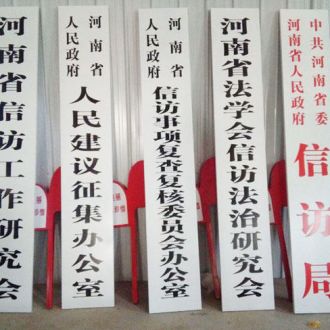 河南省信访工作研究会
河南省
人民政府
人民建议征集办公室
河南省
人民政府
信访事项复查复核委员会办公室
河南省法学会信访法治研究会
中共河南省委
河南省人民政府
信访局